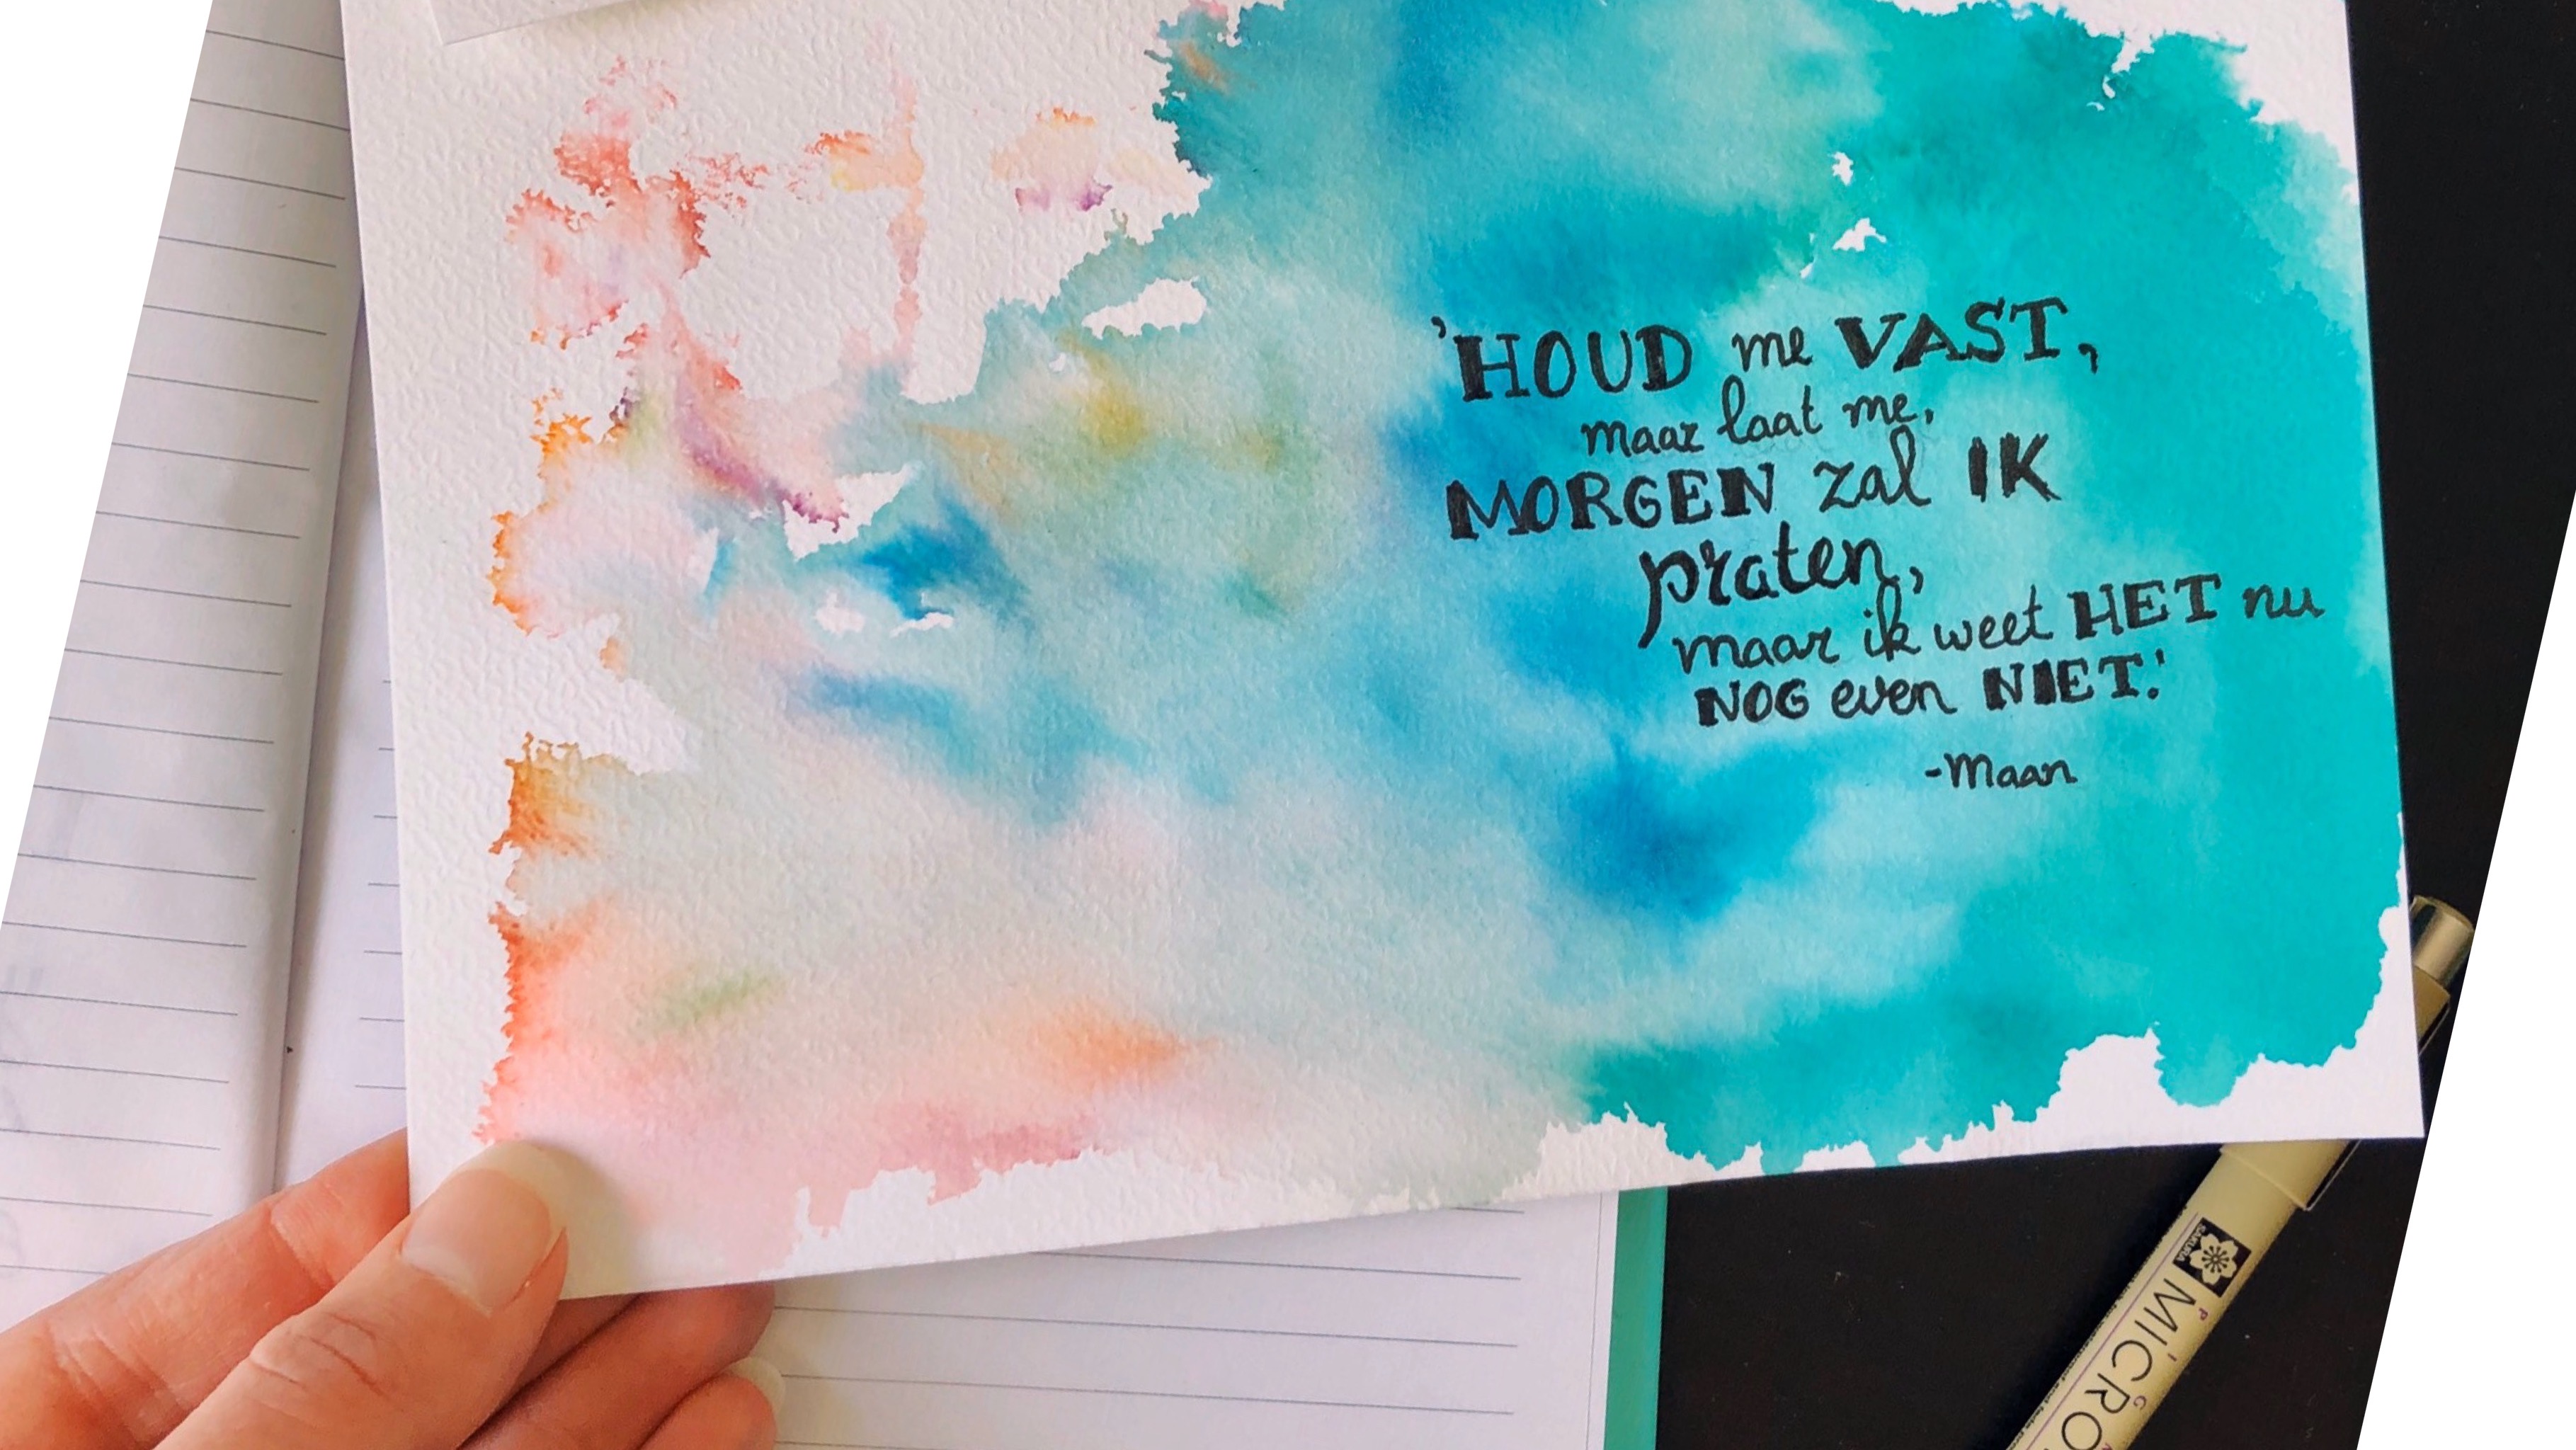 'HOUD me VAST,
maar laat me,
MORGEN zal IK
praten,
maar ik weet HET nu
NOG even NIET.'
-Maan
SAKURA
PIGMA
MICRO